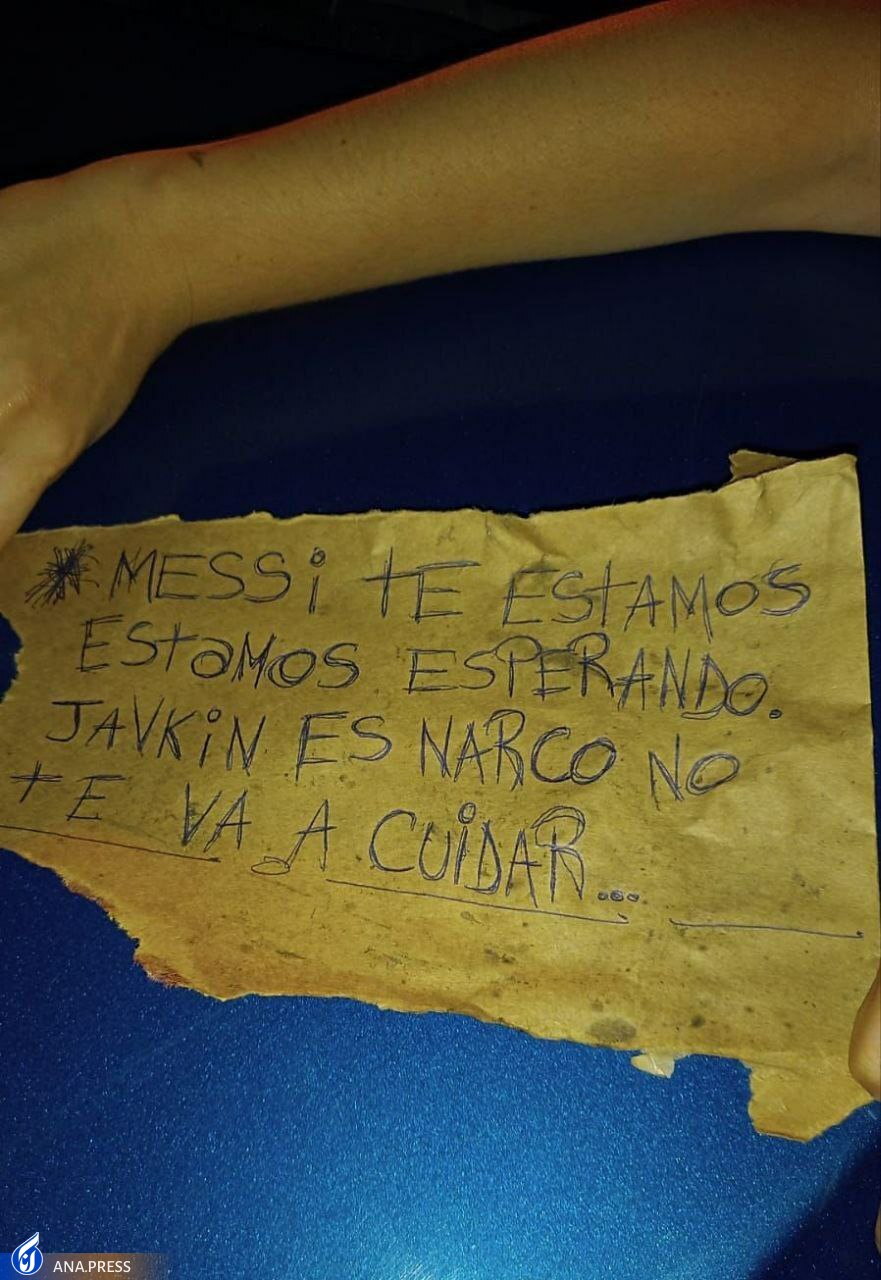 * MESSi tE EStAMOS
EStaMOS ESPERANDO.
JAVKiN ES NARCO NO
tE VA A CUiDAR...
ANA.PRESS